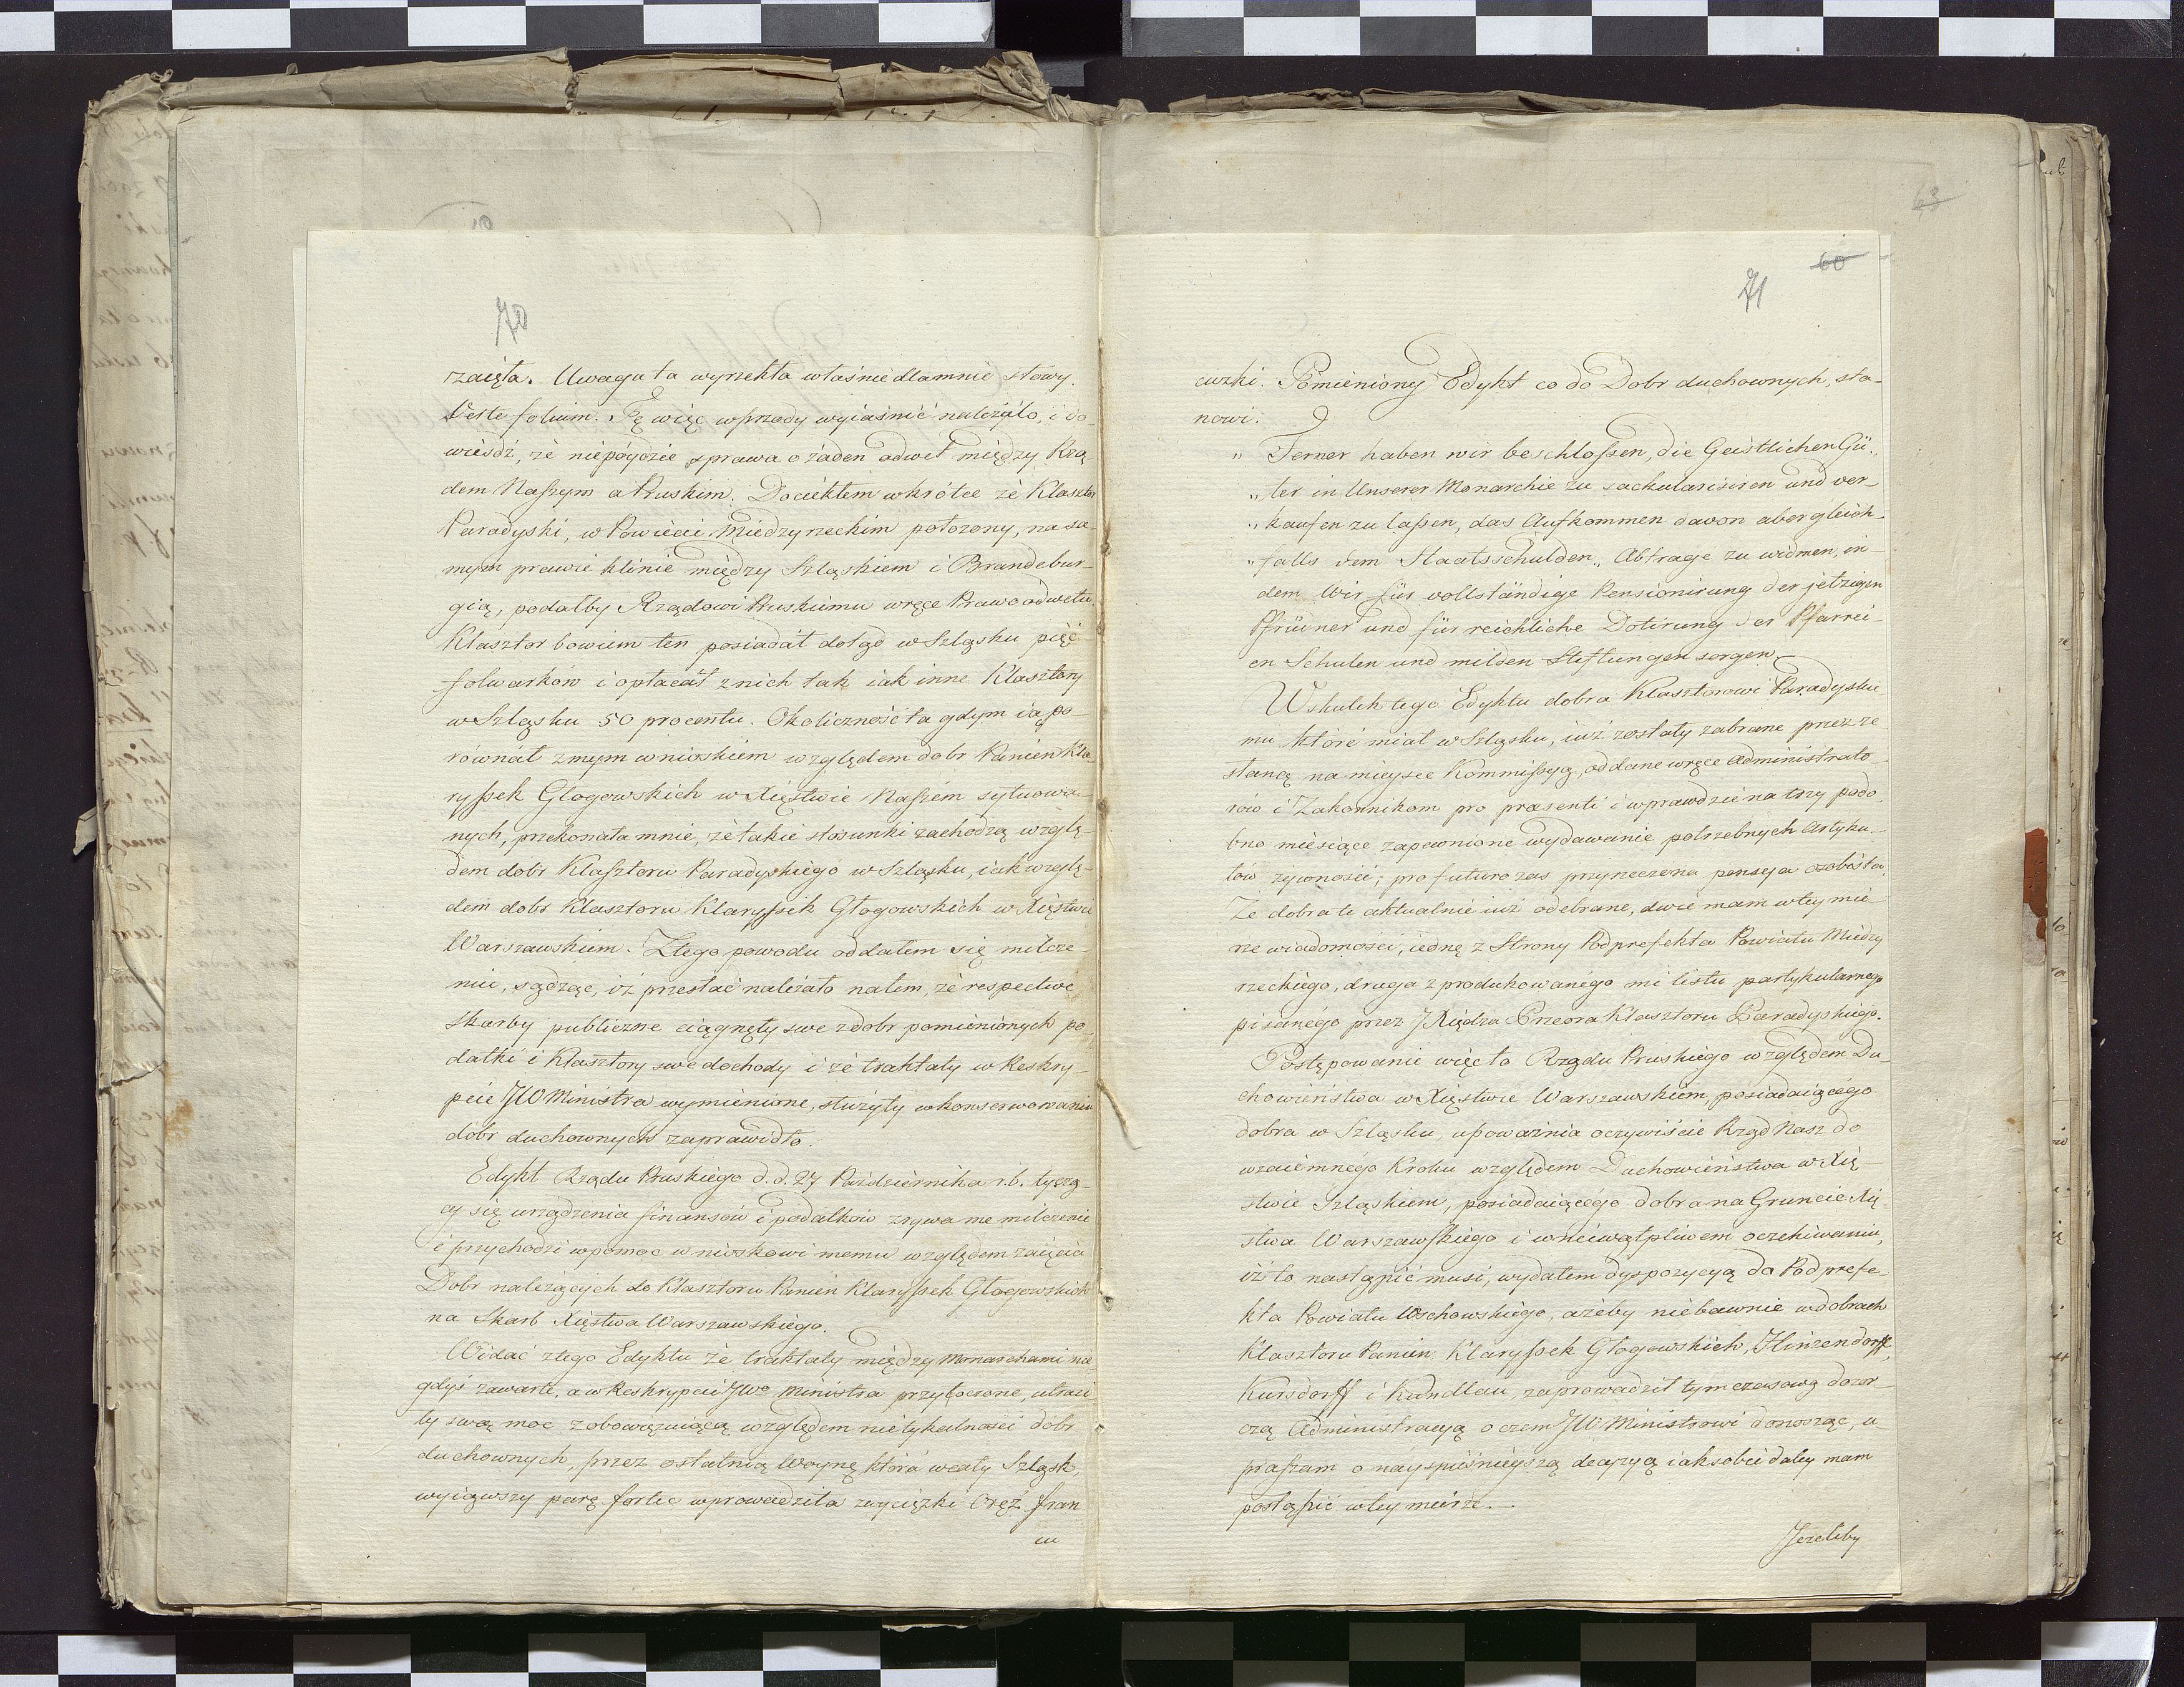 70
rzaięta. Uwaga ta wyrzekła właśnie dlamnie słowy.
Verte folium. Tę więc wprzody wyiaśnić należáło, i do-
wieśdź, że niepóydzie sprawa o żaden odwet między Rzą-
dem Naszym a Pruskim. Dociekłem wkrótce że Klasztor
Paradyski, w Powieci Międzyrzeckim położony, na sa-
mym prawie klinie między Szląskiem i Brandebur-
gią, podałby Rządowi Pruskiemu wręce Prawo odwetu.
Klasztor bowiem ten posiadał dotąd w Szląsku pięć
folwarków i opłacał z nich tak iak inne Klasztory
w Szląsku 50 procentu. Okoliczność ta gdym ią po-
równał z mym wnioskiem względem dobr Panien Kla-
ryssek Głogowskich w Xięstwie Naszem sytuowa-
nych, przekonała mnie, że takie stosunki zachodzą wzglę-
dem dobr Klasztoru Paradyskiego w Szląsku, iak wzglę-
dem dobr Klasztoru Klaryssek Głogowskich w Xięstwie
Warszawskiem. Z tego powodu oddałem się milcze-
niu, sądząc, iż przestać należało natem, że respective
skarby publiczne ciągnęły swe z dobr pomienionych po-
datki i Klasztory swe dochody i że traktaty w Reskry-
pcie JW Ministra wymienione, służyły w konserwowaniu
dobr duchownych za prawidło.
Edykt Rządu Pruskiego d. d. 27 Października r. b. tyczą-
cy się urządzenia finansów i podatków zrywa me milczenie
i przychodzi w pomoc wnioskowi memu względem zaięcia
Dobr należących do Klasztoru Panien Klaryssek Głogowskich
na Skarb Xięstwa Warszawskiego.
Widać z tego Edyktu że traktaty między Monarchami nie
gdyś zawarte, a w Reskrypcie JWo Ministra przytoczone, utraci
ły swą moc zobowiązuiącą względem nietykalności dobr
duchownych, przez ostatnią Woynę która w cały Szląsk,
wyiąwszy parę fortec wprowadziła zwycięzki Oręż fran
cu
63
60
71
cuzki. Pomieniony Edykt co do Dobr duchownych, sta-
nowi.
" Ferner haben wir beschloßen, die Geistlichen Gü-
" ter in Unserer Monarchie zu saekularisiren und ver-
" kaufen zu laßen, das Aufkommen davon aber gleich-
" falls dem Staatsschulden„ Abtrage zu widmen, in-
dem Wir für vollständige Pensionirung der jetzigen
Pfrüner und für reichliche Dotirung der Pfarrei-
en Schulen und milden Stiftungen sorgen.
W skutek tego Edyktu dobra Klasztorowi Paradyskie
mu które miał w Szląsku, iuż zostały zabrane przez ze
słaną na mieysce Kommissyą, oddane wręce Administrato
rów i Zakonnikom pro praesenti i wprawdzie na trzy podo
bno miesiące zapewnione wydawanie potrzebnych artyku-
łów żywności; pro futuro zas przyrzeczona pensya osobista,
Że dobra te aktualnie iuż odebrane, dwie mam w tey mie
rze wiadomości, iednę z Strony Podprefekta Powiatu Między
rzeckiego, druga z produkowanégo mi listu partykularnego
pisanégo przez JXiędza Przeora Klasztoru Paradyskiego.
Postępowanie więc to Rządu Pruskiego względem Du-
chowieństwa w Xięstwie Warszawskiem, posiadaiącégo
dobra w Szląsku, upoważnia oczywiście Rząd Nasz do
wzaiemnégo Kroku względem Duchowieństwa w Xię-
stwie Szląskiem, posiadaiącégo dobra na Gruncie Xię-
stwa Warszawskiego i w nieiwątpliwem oczekiwaniu,
iż to nastąpić musi, wydałem dyspozycyą do Podprefe-
kta Powiatu Wschowskiégo, ażeby niebawnie w dobrach
Klasztoru Panien Klaryssek Głogowskich, Hinzendorff,
Kursdorff i Kandlau, zaprowadził tymczasową dozor-
czą Administracyą o czem JW Ministrowi donosząc, u
praszam o nayspiesznieyszą decyzyą iak sobie daley mam
postąpić w tey mierze.
Jeżeliby